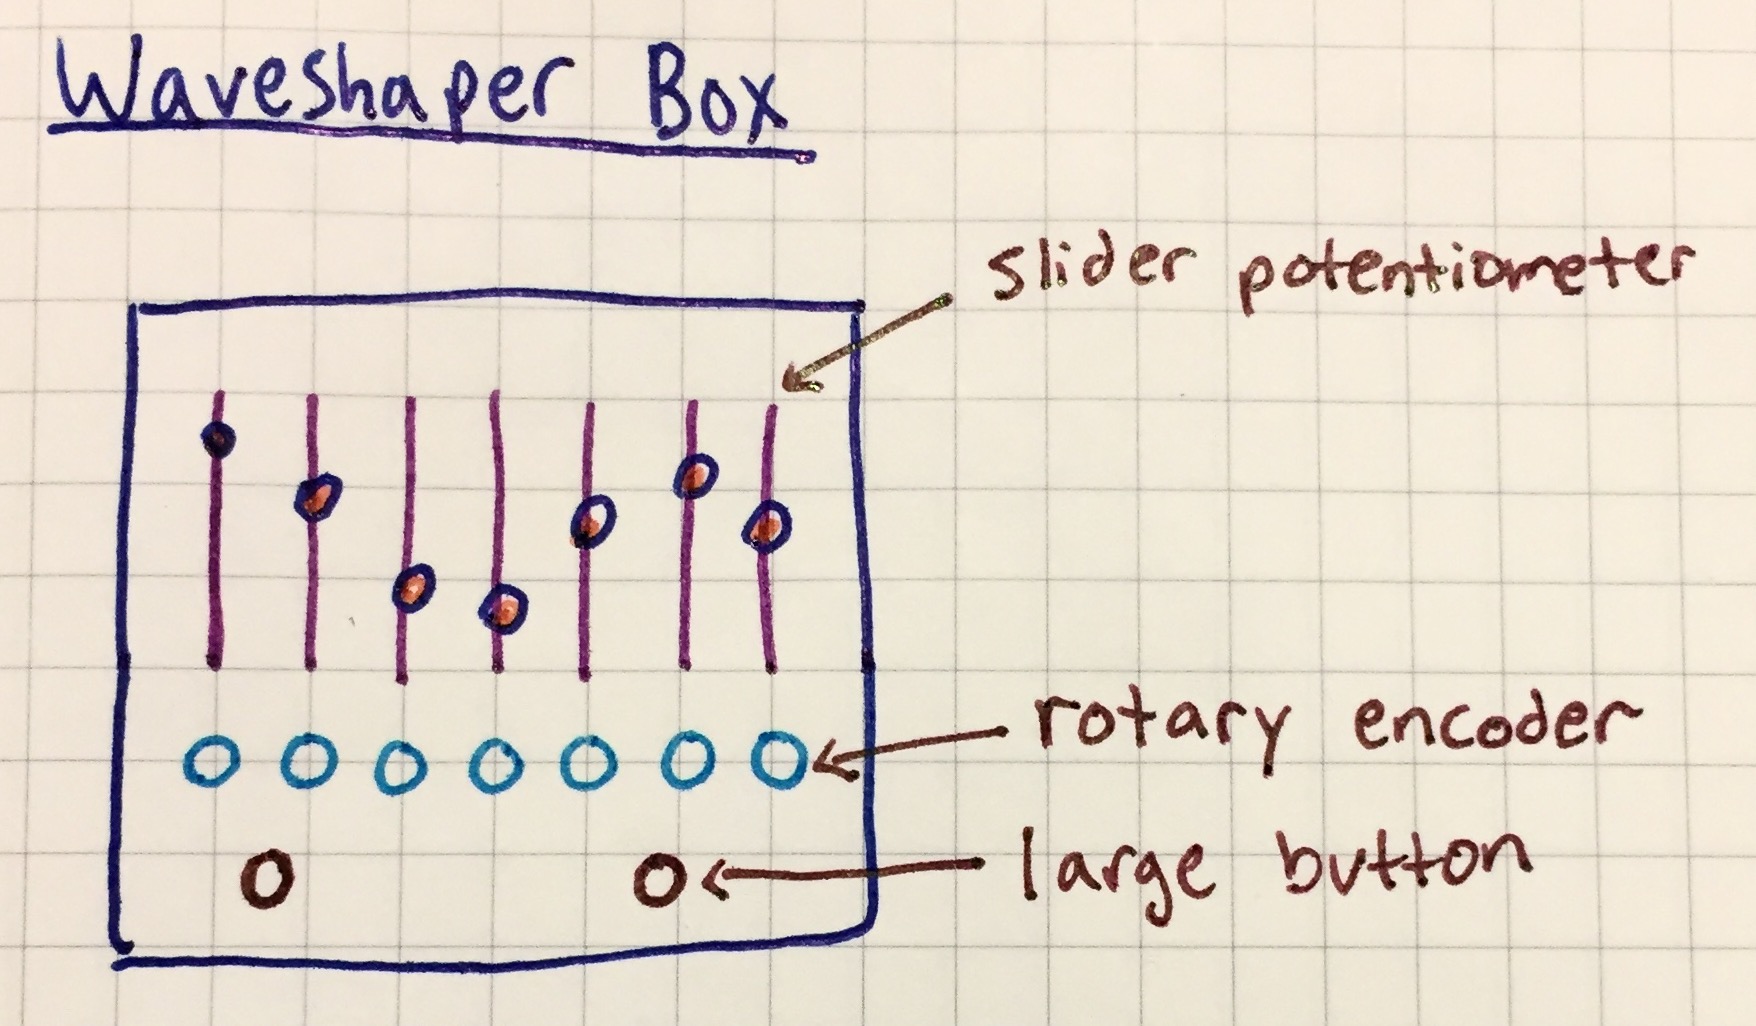 Waveshaper Box
slider potentiometer
rotary encoder
large button